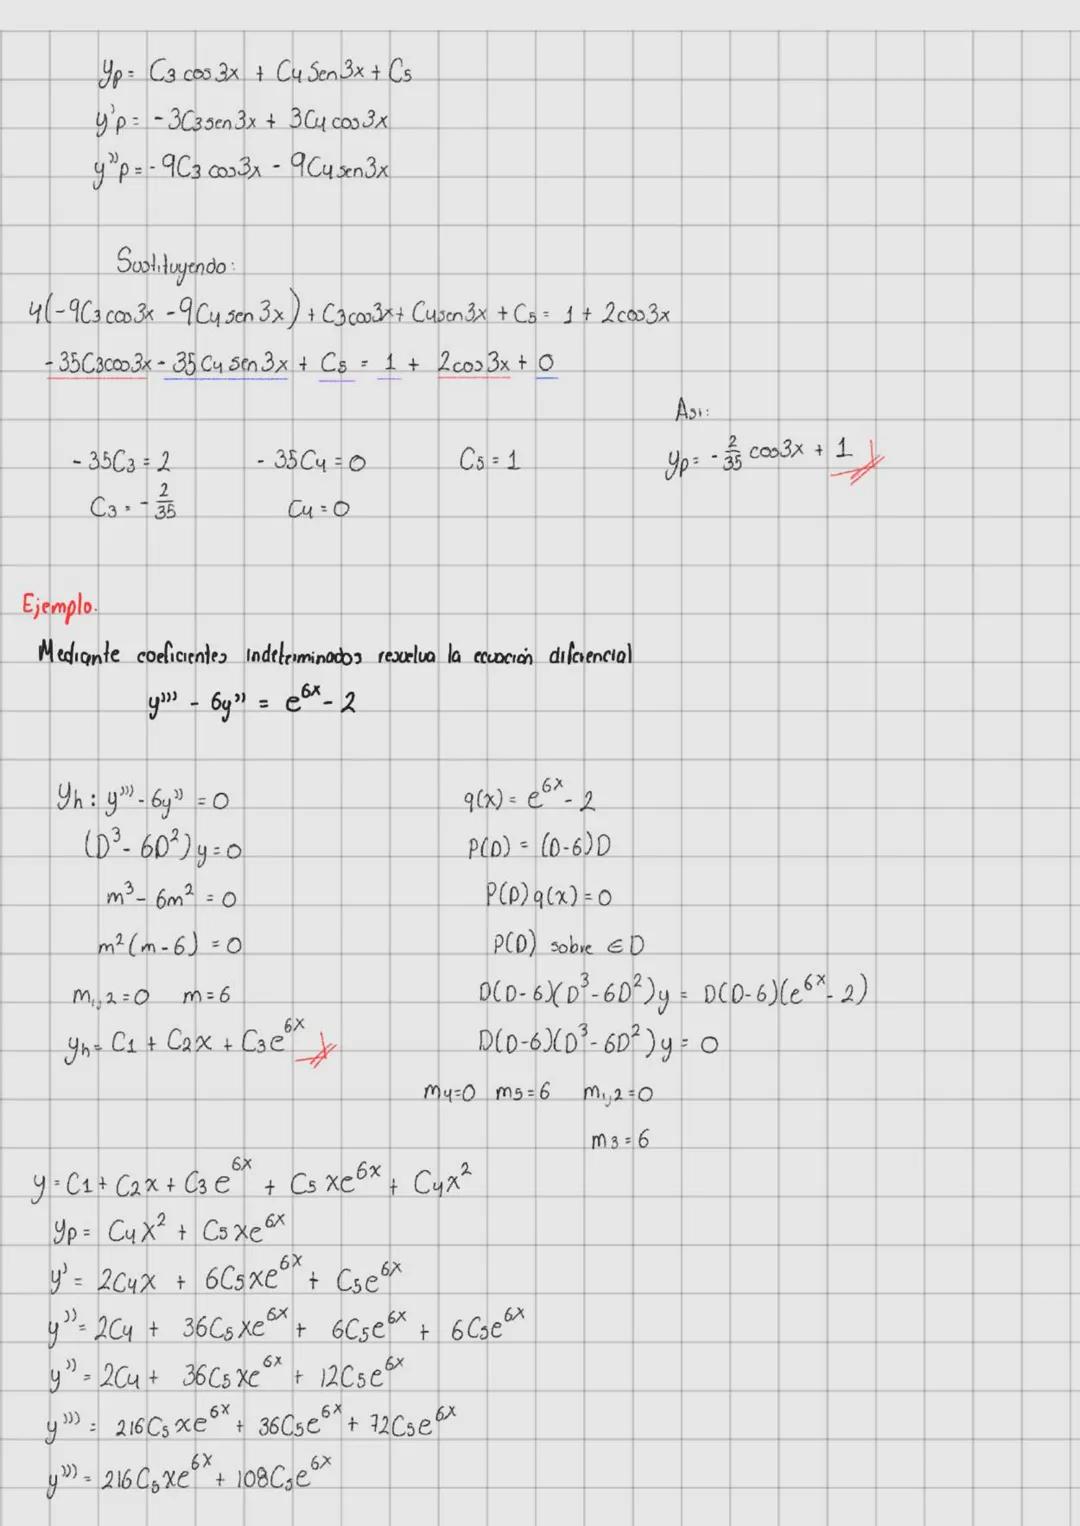 yp = C3 cos 3x + C4 Sen 3x + C5
y'p = - 3C3 sen 3x + 3C4 cos 3x
y''p = - 9C3 cos 3x - 9C4 sen 3x
Sustituyendo:
4(-9C3 cos 3x - 9C4 sen 3x) + C3 cos 3x + C4 sen 3x + C5 = 1 + 2 cos 3x
- 35C3 cos 3x - 35 C4 sen 3x + C5 = 1 + 2 cos 3x + 0
Asi:
- 35C3 = 2 - 35C4 = 0 C5 = 1 yp = - 2/35 cos 3x + 1
C3 = - 2/35 C4 = 0
Ejemplo.
Mediante coeficientes indeterminados resuelva la ecuación diferencial
y''' - 6y'' = e^6x - 2
yh : y''' - 6y'' = 0 q(x) = e^6x - 2
(D³ - 6D²) y = 0 P(D) = (D-6)D
m³ - 6m² = 0 P(D) q(x) = 0
m² (m - 6) = 0 P(D) sobre ∈ D
m1,2 = 0 m = 6 D(D-6)(D³ - 6D²)y = D(D-6)(e^6x - 2)
yh = C1 + C2x + C3e^6x D(D-6)(D³ - 6D²)y = 0
m4=0 m5=6 m1,2=0
m3 = 6
y = C1 + C2x + C3 e^6x + C5 xe^6x + C4x²
yp = C4x² + C5xe^6x
y' = 2C4x + 6C5xe^6x + C5e^6x
y'' = 2C4 + 36C5xe^6x + 6C5e^6x + 6C5e^6x
y'' = 2C4 + 36C5xe^6x + 12C5e^6x
y''' = 216C5xe^6x + 36C5e^6x + 72C5e^6x
y''' = 216C5xe^6x + 108C5e^6x